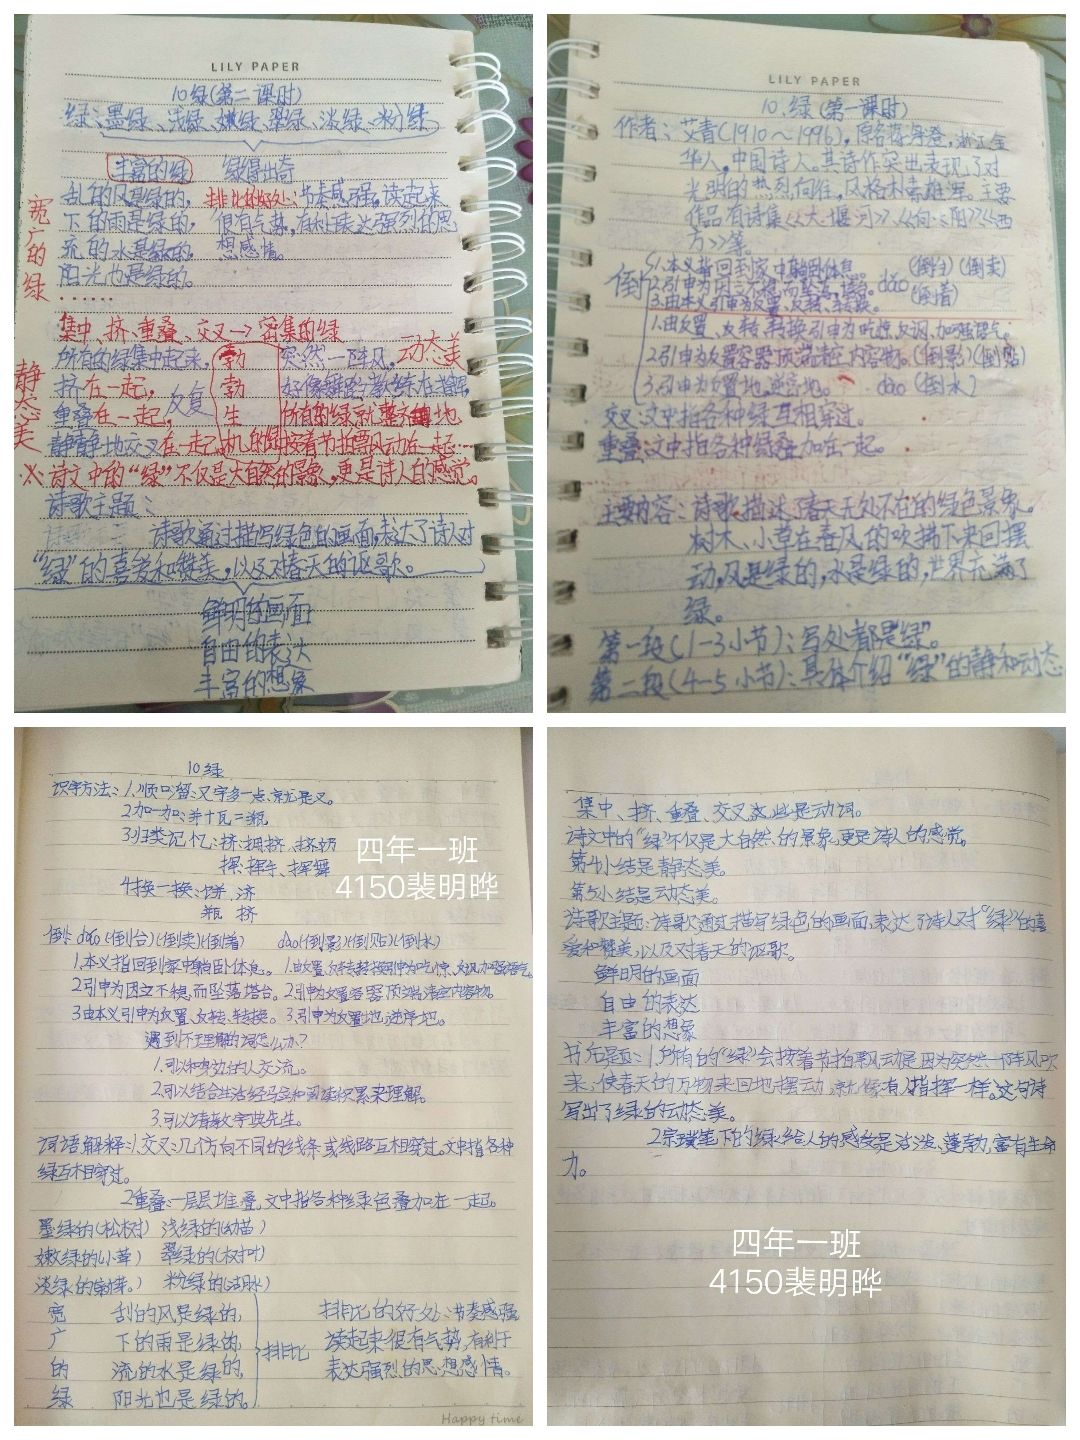 LILY PAPER
10绿(第二课时)
绿:墨绿、浅绿、嫩绿、翠绿、淡绿、粉绿
丰富的绿 绿得出奇
刮的风是绿的, 排比的好处:节奏感强,读起来
下的雨是绿的, 很有气势,有利于表达强烈的思
流的水是绿的, 想感情。
阳光也是绿的。
……
宽广的绿
集中、挤、重叠、交叉→密集的绿
所有的绿集中起来, 突然一阵风, 动态美
挤在一起, 反复 好像舞蹈教练在指挥,
重叠在一起, 所有的绿就整齐地
静静地交叉在一起。 按着节拍飘风动在一起…
勃勃生机的绿
静态美
※诗文中的“绿”不仅是大自然的景象,更是诗人的感觉。
诗歌主题:
诗歌通过描写绿色的画面,表达了诗人对
“绿”的喜爱和赞美,以及对春天的讴歌。
鲜明的画面
自由的表达
丰富的想象
LILY PAPER
10.绿(第一课时)
作者:艾青(1910~1996),原名蒋海澄,浙江金
华人,中国诗人。其诗作突出表现了对
光明的热烈向往,风格朴素雄浑。主要
作品有诗集《大堰河》、《向太阳》《西
方》等。
倒
1.本义指回到家中躺卧休息 (倒台)(倒卖)
2.引申为因立不稳而坠落、塔台。 dǎo (倒着)
3.由本义引申为反置、反转、转换。
1.由反置、反转、转换引申为吃惊、反讽、加强语气。
2.引申为反置容器顶端清空内容物。(倒影)(倒贴)
3.引申为反置地,逆序地。 dào (倒水)
交叉:文中指各种绿互相穿过。
重叠:文中指各种绿叠加在一起。
主要内容:诗歌描述了春天无处不在的绿色景象。
树木、小草在春风的吹拂下来回摆
动,风是绿的,水是绿的,世界充满了
绿。
第一段(1-3小节):写处都是“绿”。
第二段(4-5小节):具体介绍“绿”的静和动态
10绿
识字方法:1.顺口溜:又字多一点,就是叉。
2加一加:并+瓦=瓶
3归类记忆:挤:拥挤、挤奶
挥:挥手、挥舞
4换一换:饼、济
瓶 挤
四年一班
4150裴明晔
倒dǎo(倒台)(倒卖)(倒着) dào(倒影)(倒贴)(倒水)
1.本义指回到家中躺卧休息。 1.由反置、反转、转换引申为吃惊、反讽、加强语气。
2引申为因立不稳,而坠落塔台。 2引申为反置容器顶端清空内容物。
3由本义引申为反置、反转、转换。 3.引申为反置地、逆序地。
遇到不理解的词怎么办?
1.可以和身边的人交流。
2.可以结合生活经验和阅读积累来理解。
3.可以请教字典先生。
词语解释:1.交叉:几个方向不同的线条或线路互相穿过。文中指各种
绿互相穿过。
2重叠:一层层堆叠,文中指各种绿色叠加在一起。
墨绿的(松树) 浅绿的(幼苗)
嫩绿的(小草) 翠绿的(树叶)
淡绿的( ) 粉绿的(湖水)
宽 刮的风是绿的, 排比的好处:节奏感强
广 下的雨是绿的, 排比 读起来很有气势,有利于
的 流的水是绿的, 表达强烈的思想感情。
绿 阳光也是绿的。
Happy time
集中、挤、重叠、交叉这些是动词。
诗文中的“绿”不仅是大自然的景象,更是诗人的感觉。
第4小结是静态美。
第5小结是动态美。
诗歌主题:诗歌通过描写绿色的画面,表达了诗人对“绿”的喜
爱和赞美,以及对春天的讴歌。
鲜明的画面
自由的表达
丰富的想象
书后题:1.所有的“绿”会按着节拍飘动是因为突然一阵风吹
来,使春天的万物来回地摆动,就像有人指挥一样。这句诗
写出了绿的动态美。
2宗璞笔下的绿给人的感受是活泼、蓬勃,富有生命
力。
四年一班
4150裴明晔